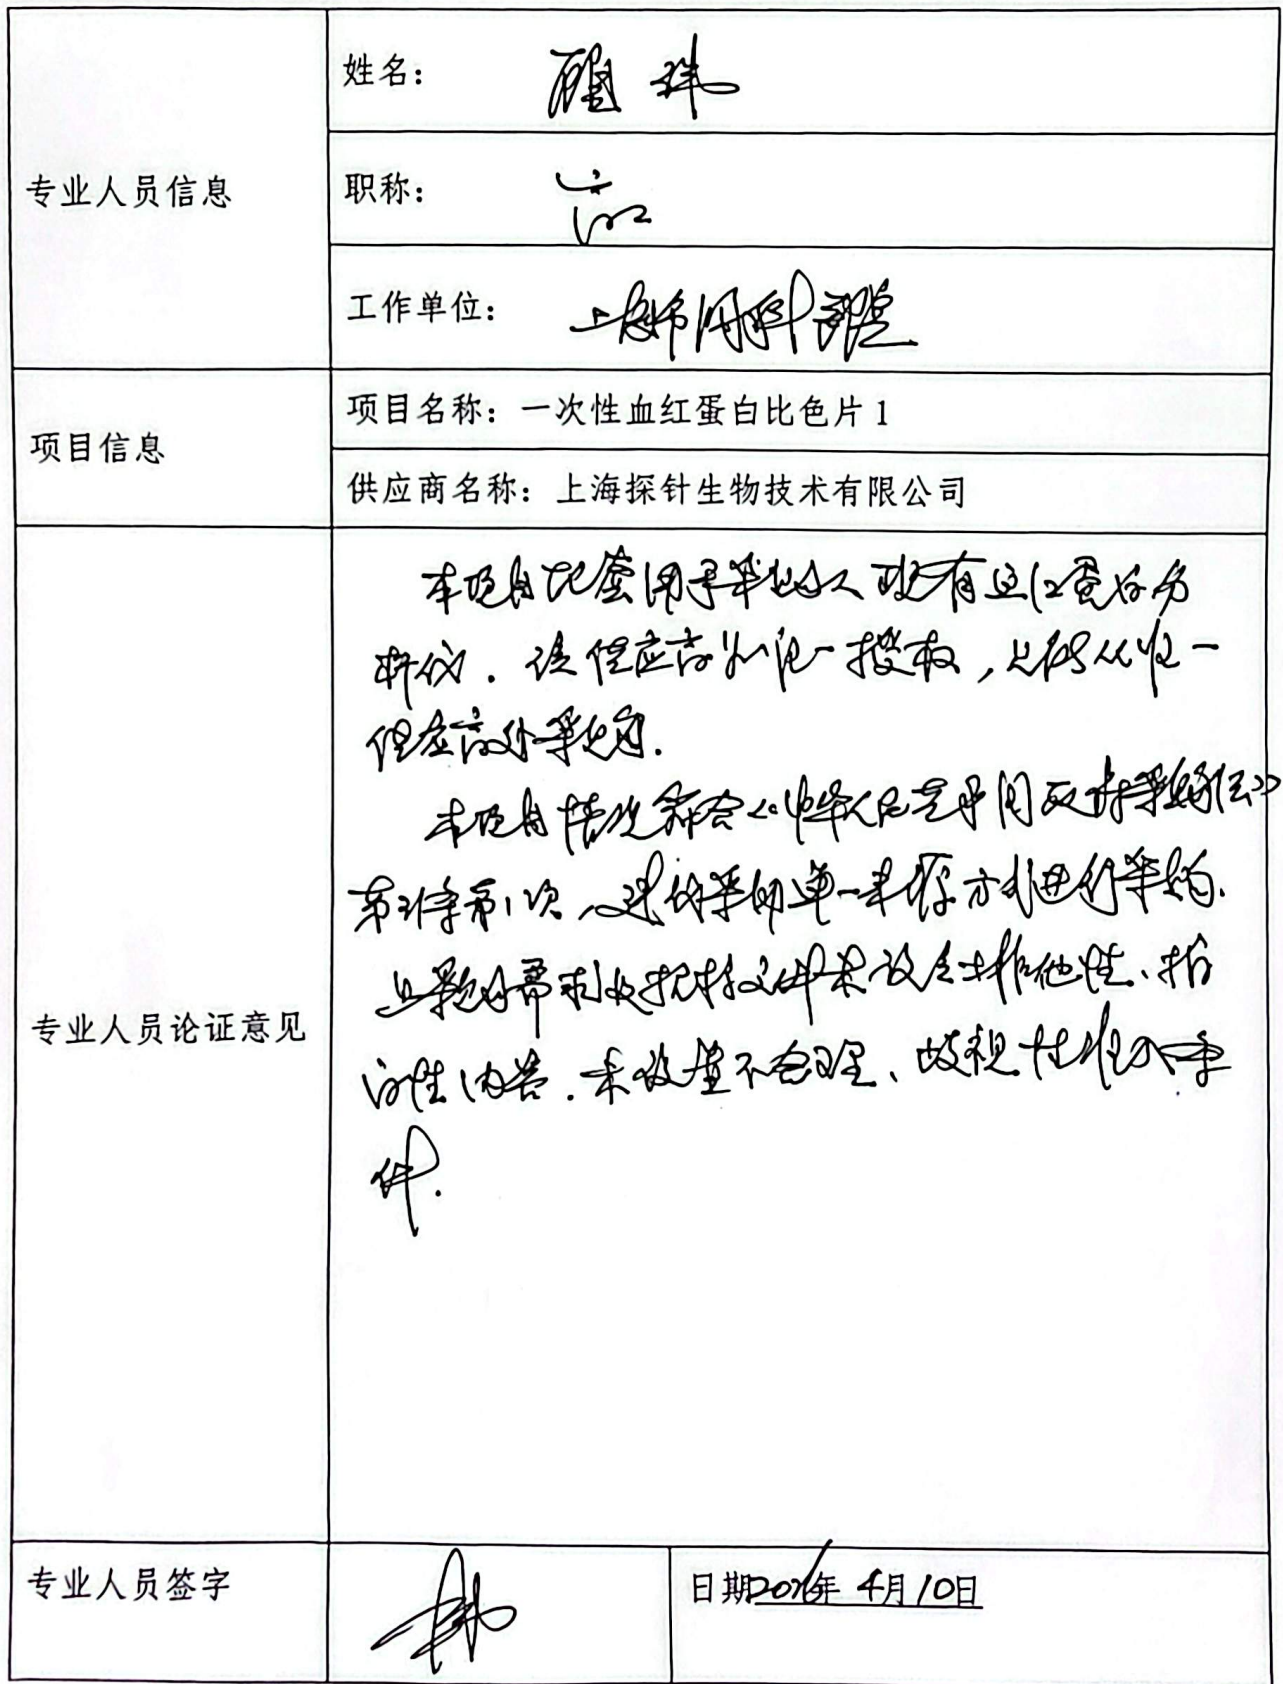 专业人员信息
姓名：
职称：
工作单位：上海市肺科医院
项目信息
项目名称：一次性血红蛋白比色片1
供应商名称：上海探针生物技术有限公司
专业人员论证意见
本项目配套用于采购人现有血红蛋白分
析仪．该供应商为唯一授权，只能从唯一
供应商处采购．
本项目情况符合《中华人民共和国政府采购法》
第31条第1项，建议采用单一来源方式进行采购．
且采购需求及招标文件未设定排他性、指
向性内容．未设置不合理、歧视性准入条
件．
专业人员签字
日期2026年4月10日